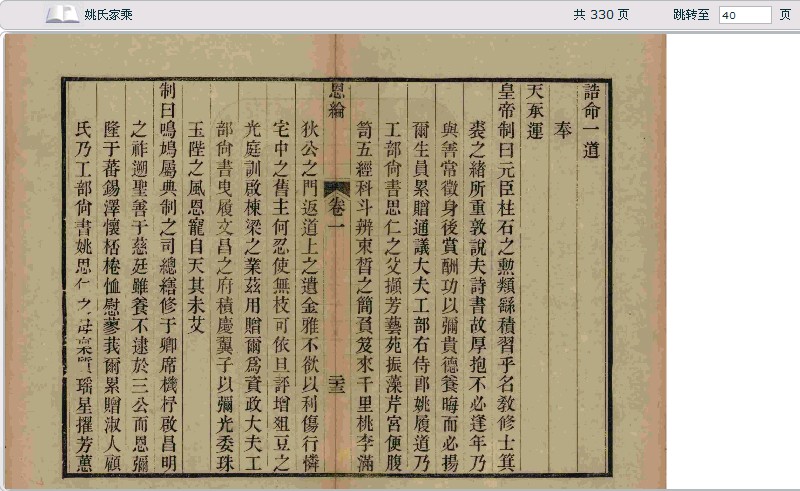 姚氏家乘
共 330 页
跳转至 40 页
誥命一道
奉
天承運
皇帝制曰元臣柱石之勲類繇積習乎名教修士箕
裘之緒所重敦說夫詩書故厚抱不必逢年乃
與善常徵身後賞酬功以彌貴德養晦而必揚
爾生員累贈通議大夫工部右侍郎姚履道乃
工部尙書思仁之父擷芳藝苑振藻芹宮便腹
笥五經科斗辨束晳之簡負笈來千里桃李滿
狄公之門返道上之遺金雅不欲以利傷行憐
宅中之舊主何忍使無枝可依旦評增爼豆之
光庭訓啟棟梁之業茲用贈爾爲資政大夫工
部尙書曳履文昌之府積慶翼子以彌光委珠
玉陛之風恩寵自天其未艾
制曰鳴鳩屬典制之司總繕修于卿席機杼啟昌明
之祚遡聖善于慈廷雖養不逮於三公而恩彌
隆于蕃錫澤懷桮棬恤慰蓼莪爾累贈淑人顧
氏乃工部尙書姚思仁之母稟質瑶星擢芳蕙
恩綸
卷一
二十三